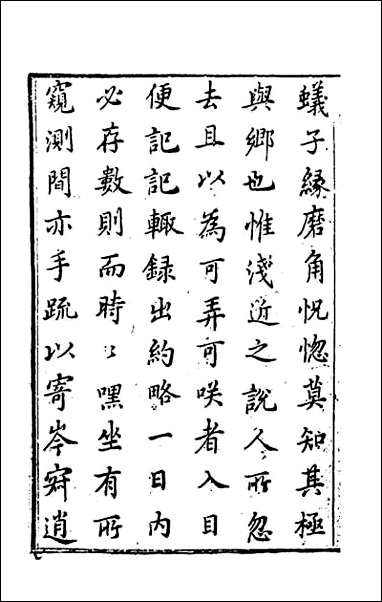 蟻子緣磨角怳惚莫知其極
與鄉也惟淺近之說人所忽
去且以為可弄可咲者入目
便記記輙録出約略一日内
必存數則而時〻嘿坐有所
窺測間亦手疏以寄岑寂逍